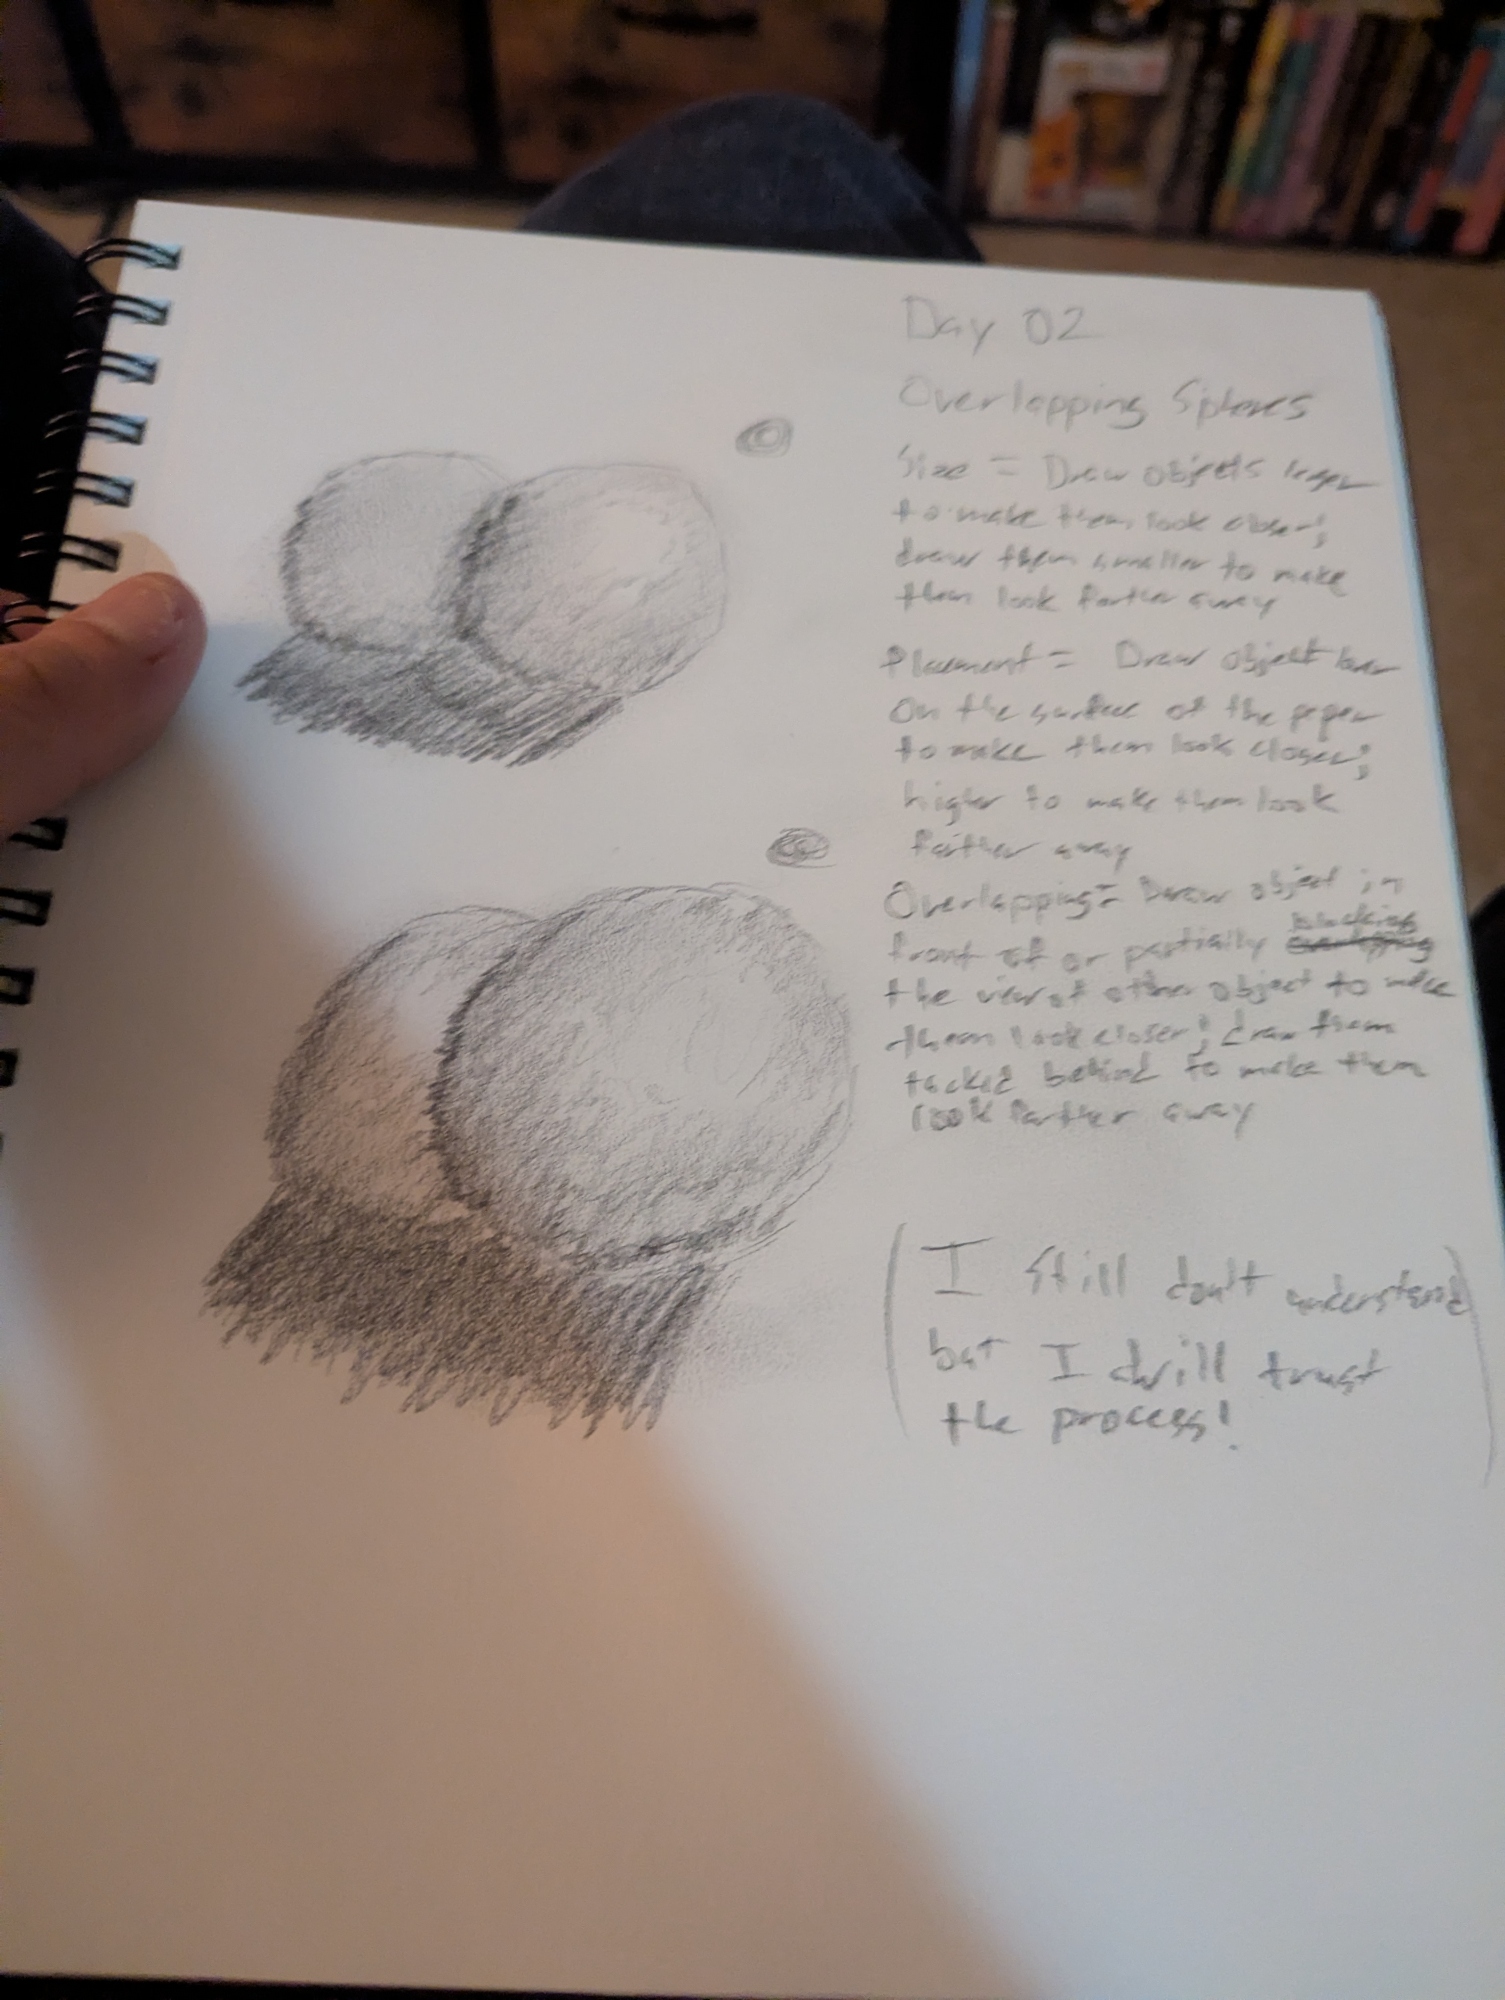 Day 02
Overlapping Spheres
Size = Draw objects larger
to make them look closer;
draw them smaller to make
them look farther away
Placement = Draw object lower
on the surface of the paper
to make them look closer;
higher to make them look
farther away
Overlapping = Draw object in
front of or partially blocking
the view of other object to make
them look closer; draw them
tucked behind to make them
look farther away
(I still don't understand
but I will trust
the process!)